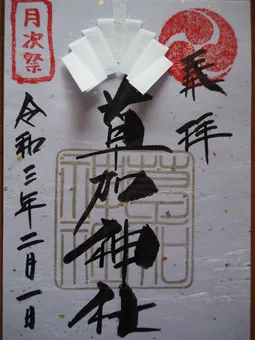 奉拝
月次祭
草加神社
令和三年二月一日